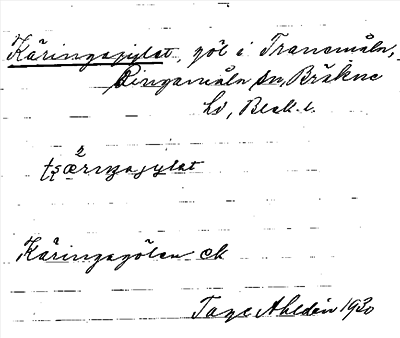 Käringagylet göl i Tranemåln,
Ringamåln sn, Bräkne
hd, Blek. l.
2
Käringagölen ek
Tage Ahldén 1930